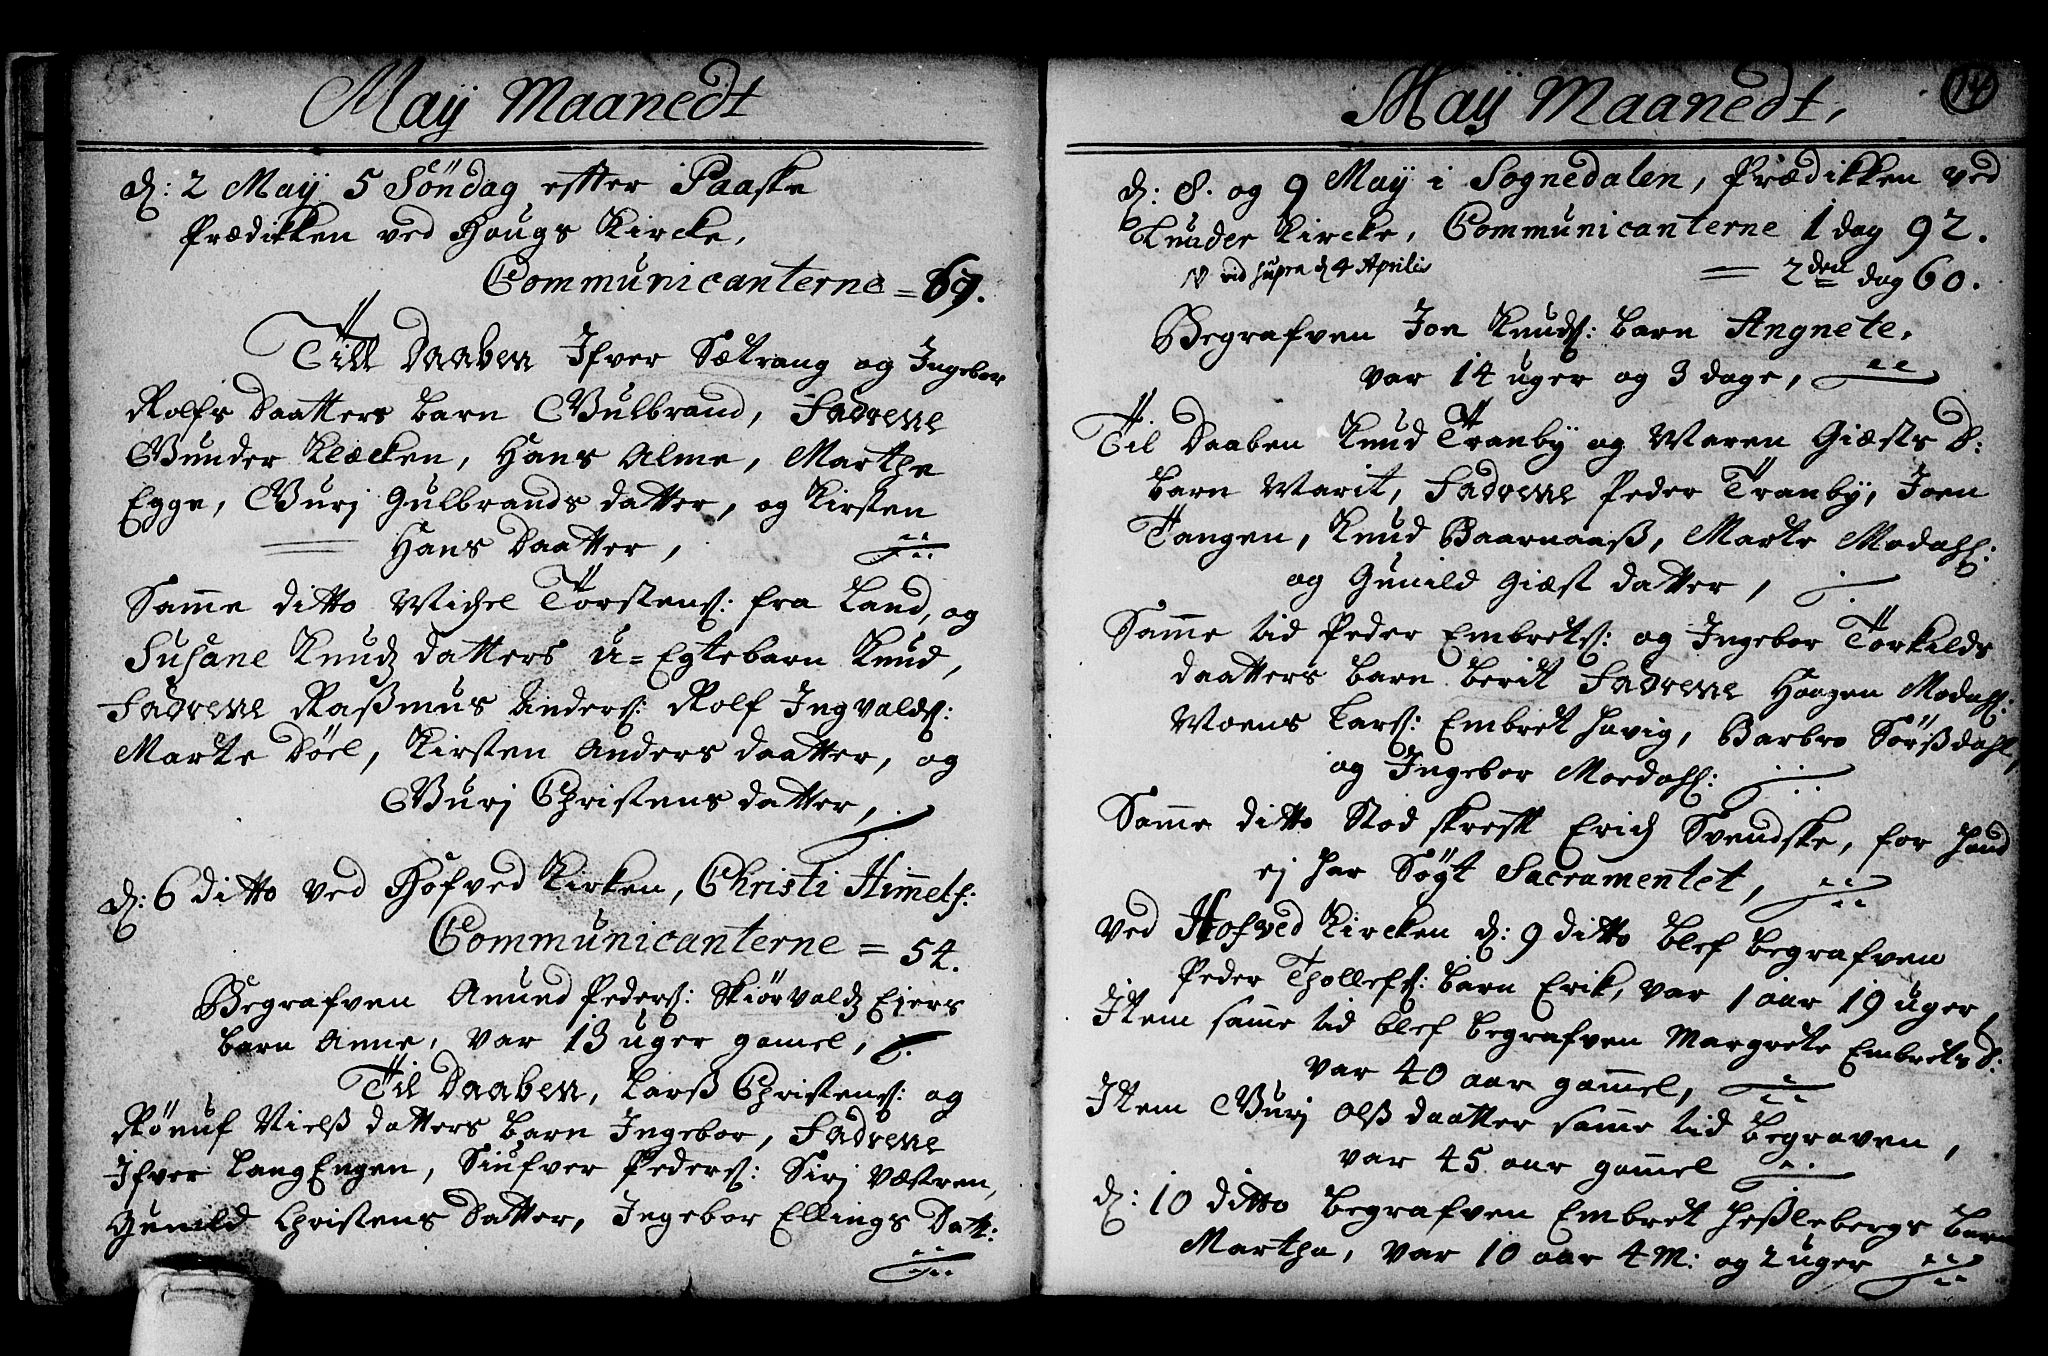 Maÿ Maanedt
d: 2 Maÿ 5 Söndag effter Paaske
Prædikken ved Hougs Kircke,
Communicanterne = 67.
Till Daaben Ifver Sætrang og Ingebor
Rolfs Daatters barn Gulbrand, Fadrene
Gunder Klæcken, Hans Alme, Marthe
Egge, Gurj Gulbrands datter, og Kirsten
Hans Daatter,
Samme ditto Michel Torstens: fra Land, og
Susane Knudz datters u=Egtebarn Knud,
Fadrene Rassmus Anders: Rolf Ingvalds:
Marte Döel, Kirsten Anders daatter, og
Gurj Christens datter,
d: 6 ditto ved Hofved Kirken, Christi Himmelf:
Communicanterne = 54.
Begrafven Amund Peders: Skiörvaldz Ejers
barn Anne, var 13 uger gamel,
Til Daaben, Larss Christens: og
Rönuf Nielss datters barn Ingebor, Fadrene
Ifver Lang Engen, Siufver Peders: Sirj Væstren,
Gunild Christens Datter, Ingebor Ellings Datt:
Maÿ Maanedt,
14
d: 8. og 9 Maÿ i Sognedalen, Prædikken ved
Lunder Kircke, Communicanterne 1 dag 92.
vid supra d 4 Aprilis
= 2den dag 60.
Begrafven Jon Knuds: barn Angnete,
var 14 uger og 3 dage,
Til Daaben Knud Tranbÿ og Maren Giæsts D:
barn Marit, Fadrene Peder Tranbÿ, Joen
Tangen, Knud Baarnaass, Marte Modahl:
og Gunild Giæst datter,
Samme tid Peder Embrets: og Ingebor Torkilds
daatters barn Berit Fadrene Haagen Modahl:
Moens Lars: Embret Havig, Barbro Sörssdahl,
og Ingebor Moedahl:
Samme ditto Stod skreft Erich Svendske, for hand
ej har Sögt Sacramentet,
ved Hofved Kircken d: 9 ditto blef begrafven
Peder Thollefs: barn Erik, var 1 aar 19 uger,
Item samme tid blef begrafven Margrete Embrets D:
var 40 aar gammel,
Item Gurj Olss daatter samme tid begraven,
var 45 aar gammel
d: 10 ditto begrafven Embret Hesslebergs barn
Martha, var 10 aar 4 M: og 2 uger